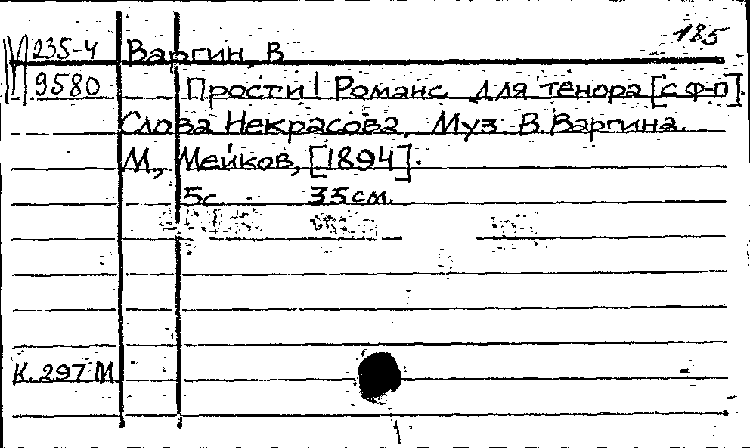 185
235-4 Варгин, В
9580 Прости! Романс для тенора [с ф-п].
Слова Некрасова, Муз В. Варгина.
М, Мейков, [1894].
5с. 33см.
К. 297 М